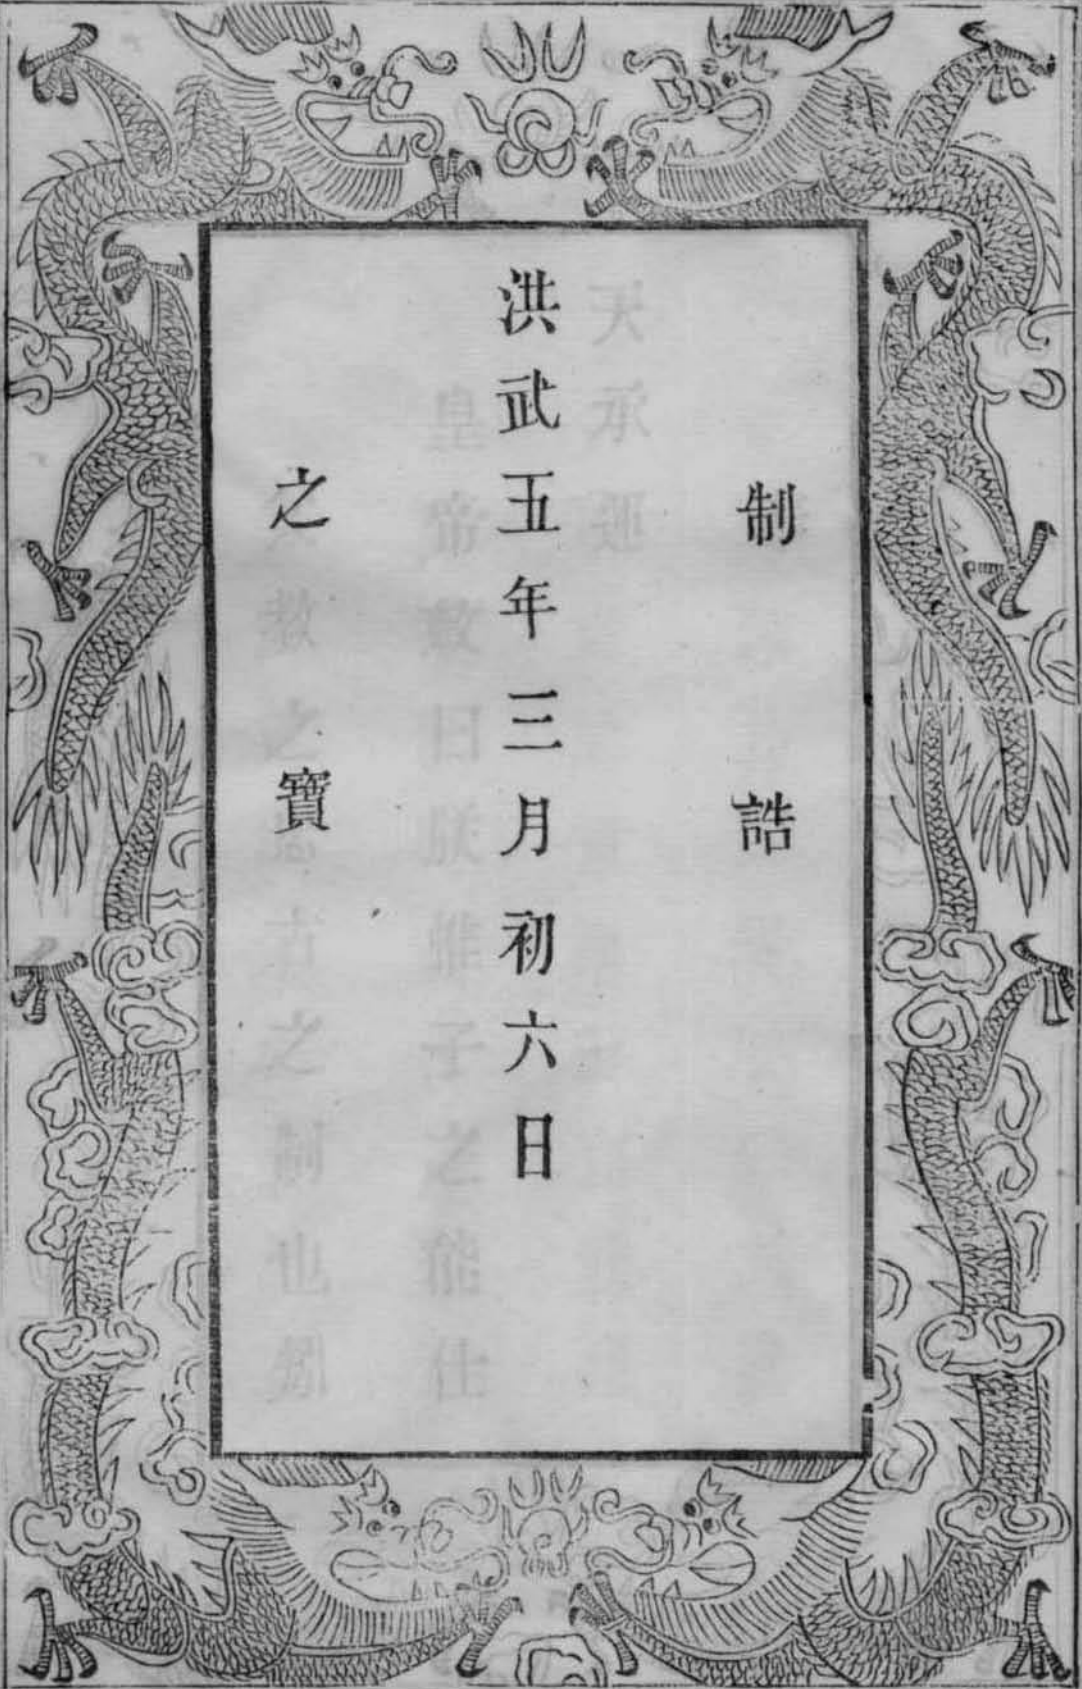 制誥
洪武五年三月初六日
之寶